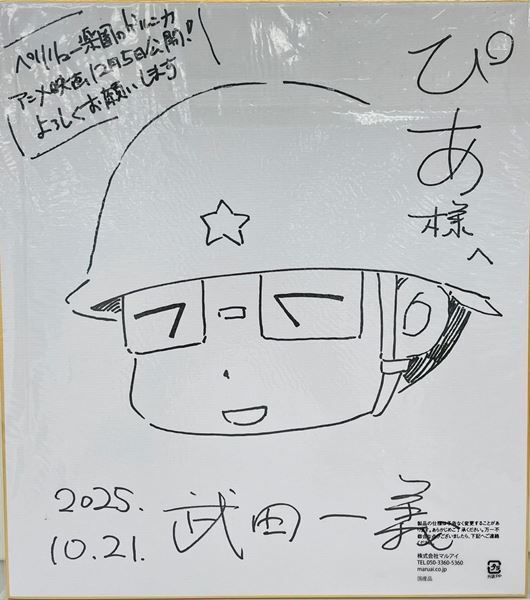 ペリリュー 楽園のゲルニカ
アニメ映画、12月5日公開!
よろしくお願いします
ぴあ
様へ
2025.
10.21.
武田一義
製品の仕様は予告なく変更することがあ
ります。あらかじめご了承ください。万一不
都合な点がございましたら、下記へご連絡
ください。
株式会社マルアイ
TEL.050-3360-5360
maruai.co.jp
国産品
プラ
外袋:PP